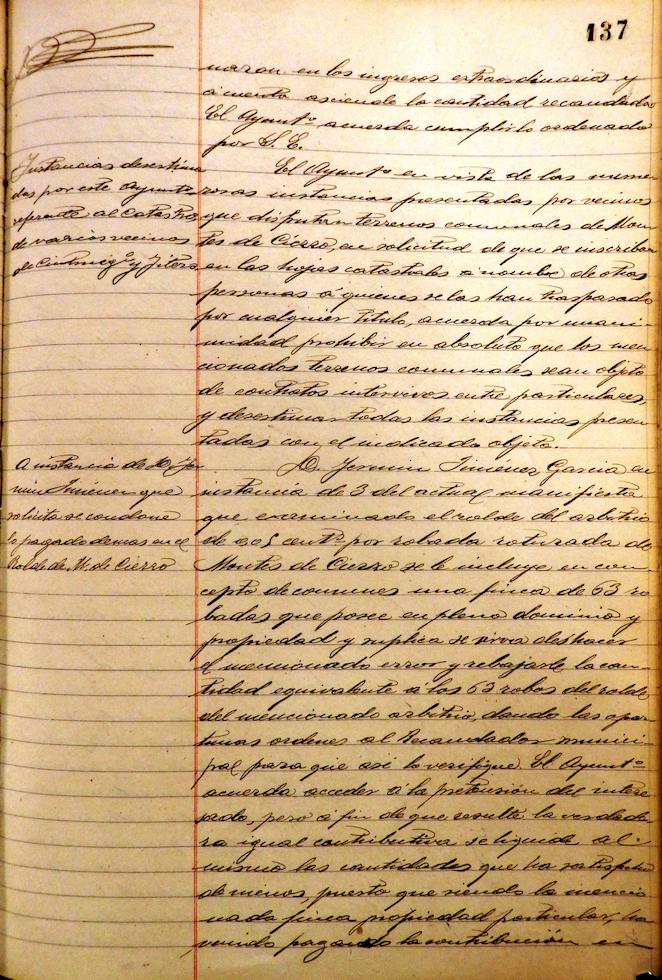 137
maron en los ingresos extraordinarios y
á cuanto asciende la cantidad recaudada
El Ayuntº acuerda cumplir lo ordenado
por S. E.
Instancias desestima
das por este Ayuntº
referente al Catastro
de varios vecinos
de Cintruéigº y Fitero
El Ayuntº en vista de las nume
rosas instancias presentadas por vecinos
que disfrutan terrenos comunales de Mon
tes de Cierzo, en solicitud de que se inscriban
en las hojas catastrales á nombre de otras
personas á quienes se las han traspasado
por cualquier título, acuerda por unani-
midad prohibir en absoluto que los men
cionados terrenos comunales sean objeto
de contratos intervivos entre particulares,
y desestimar todas las instancias presen
tadas con el indicado objeto.
A instancia de D. Fer
min Jimenez que
solicita se condone
lo pagado demas en el
Rolde de M. de Cierzo
D. Fermin Jimenez Garcia en
instancia de 3 del actual manifiesta
que examinado el rolde del arbitrio
de 0,05 centˢ por robada roturada de
Montes de Cierzo se le incluye en con
cepto de comunes una finca de 63 ro
badas que posee en pleno dominio y
propiedad y suplica se sirva deshacer
el mencionado error y rebajarle la can-
tidad equivalente á los 63 robos del rolde
del mencionado arbitrio, dando las opor
tunas ordenes al Recaudador munici-
pal para que asi lo verifique. El Ayuntº
acuerda acceder á la pretension del intere
sado, pero á fin de que resulte la verdade
ra igual contributiva se liquide al
mismo las cantidades que ha satisfecho
de menos, puesto que siendo la mencio
nada finca propiedad particular, ha
venido pagando la contribución en